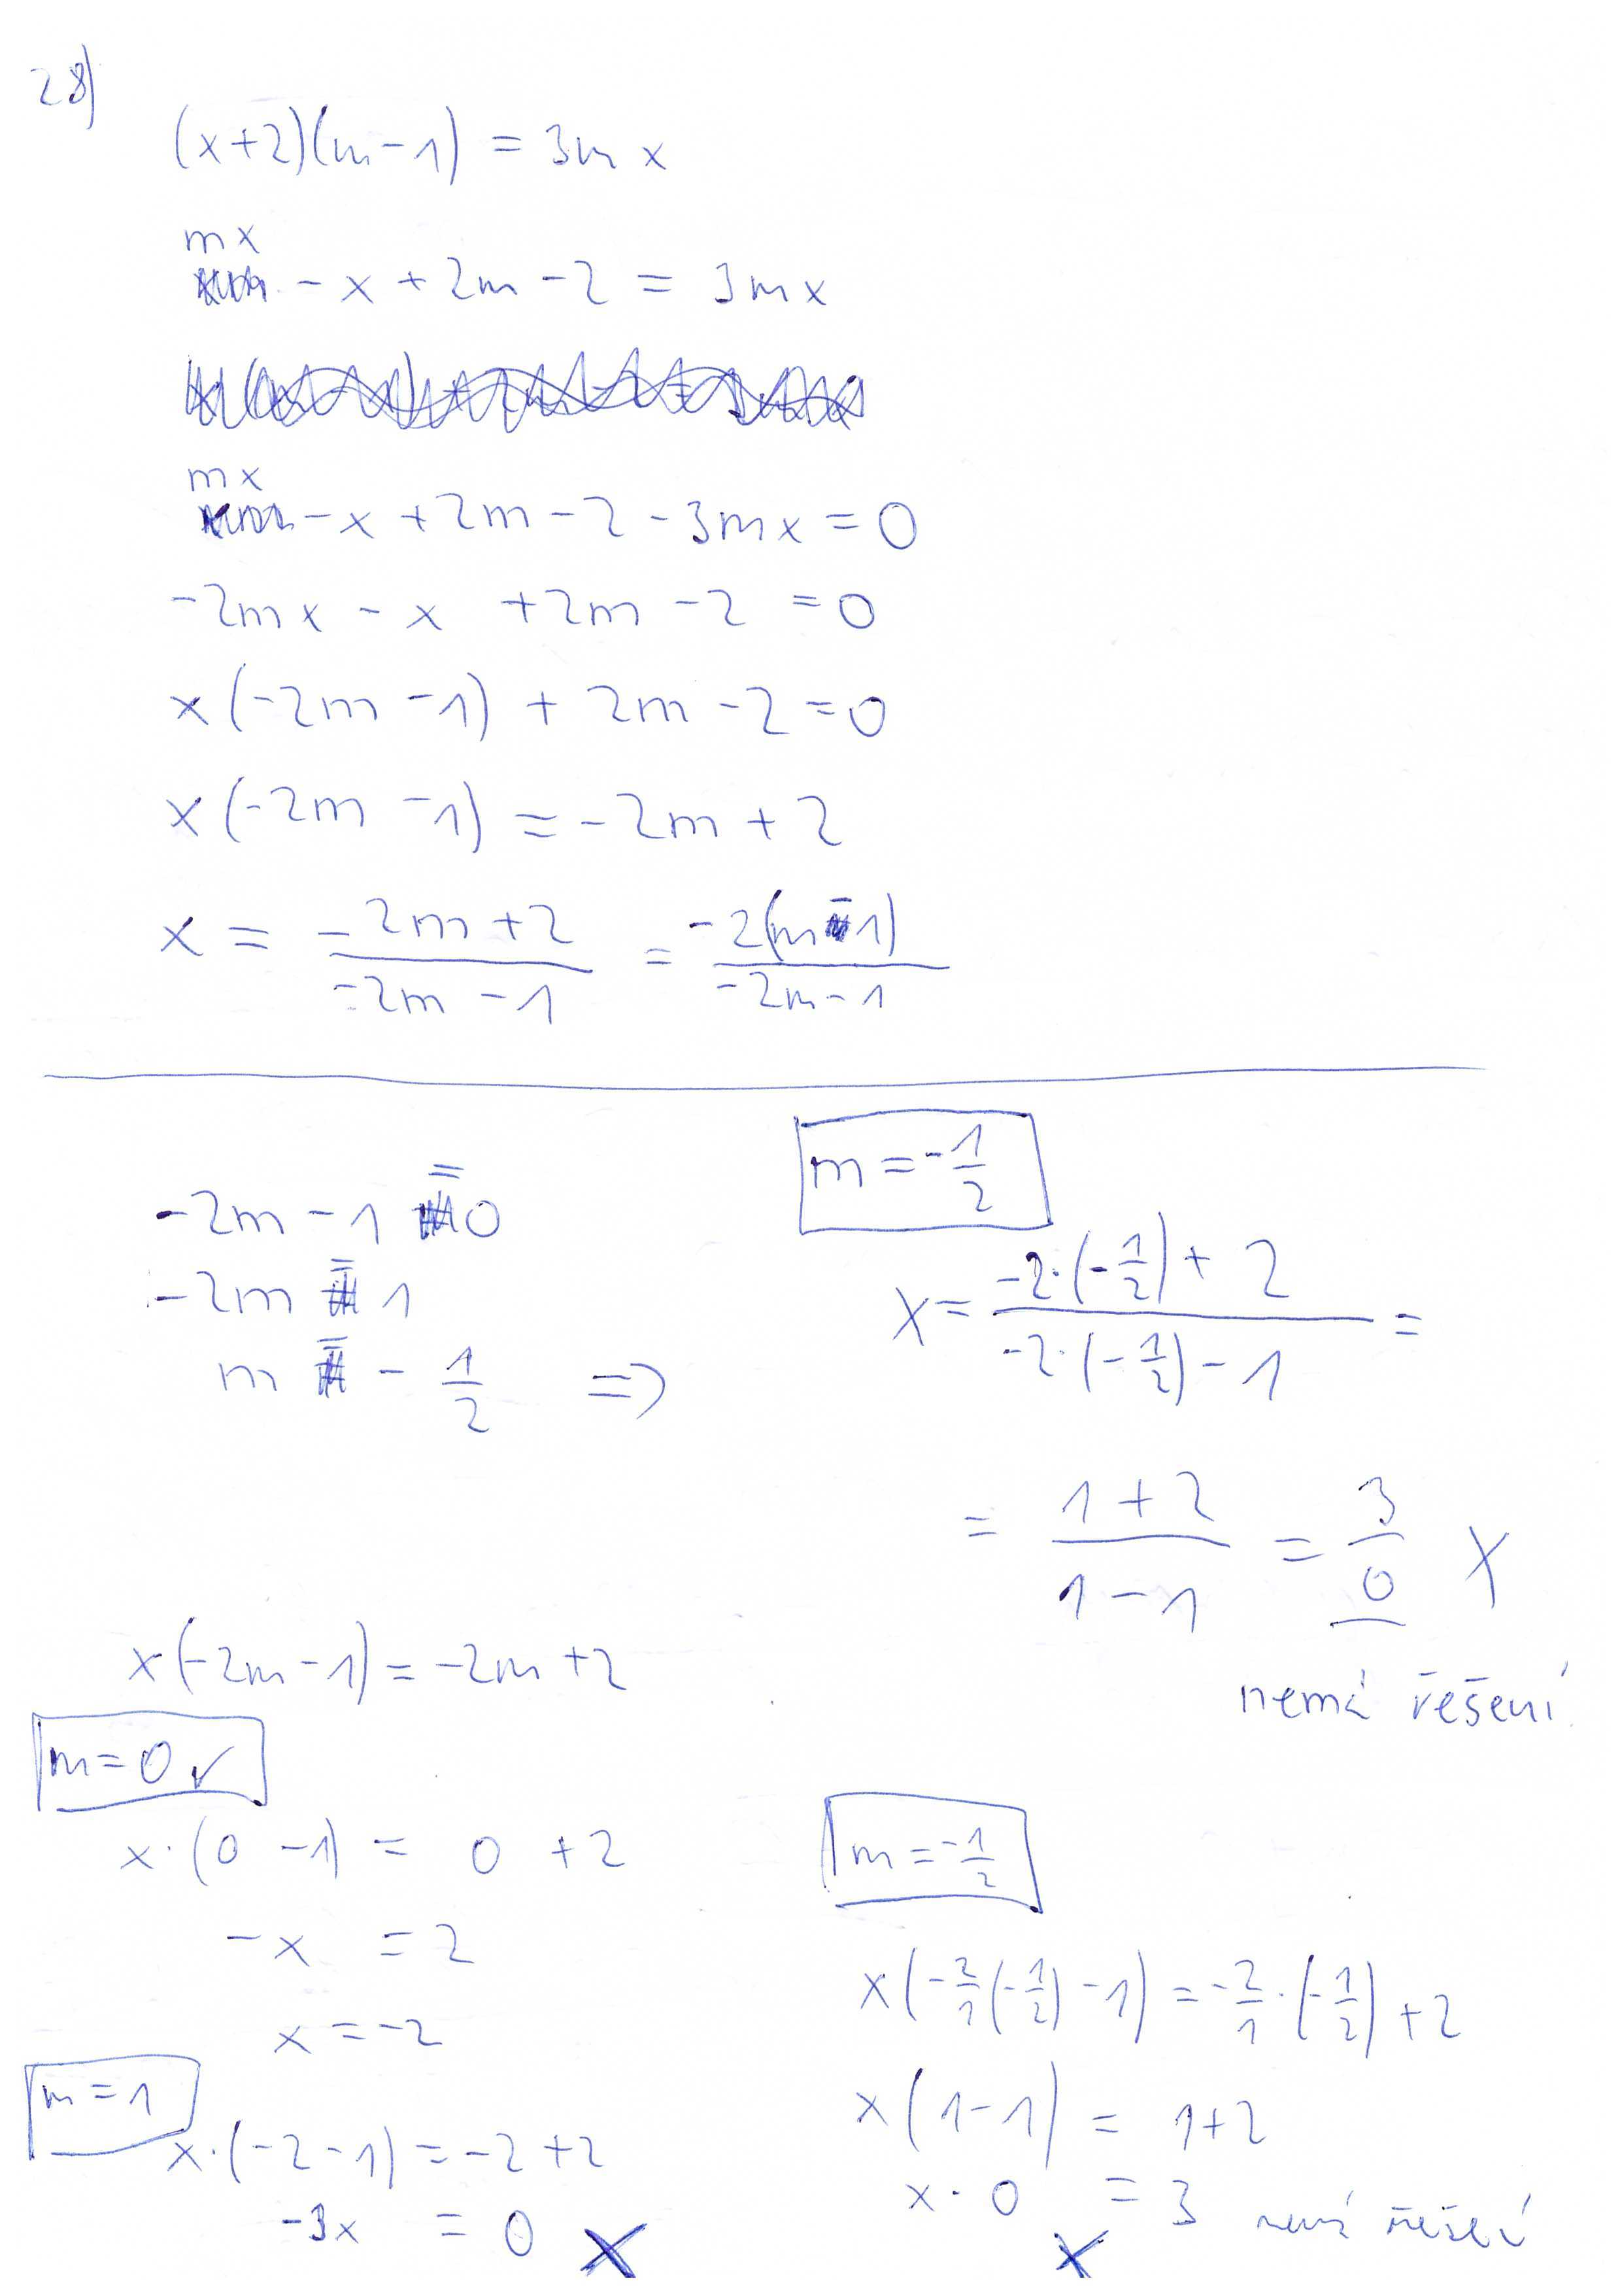 28)
(x+2)(m-1) = 3mx
mx
-x + 2m - 2 = 3mx
mx
-x + 2m - 2 - 3mx = 0
-2mx - x + 2m - 2 = 0
x(-2m - 1) + 2m - 2 = 0
x(-2m - 1) = -2m + 2
x = \frac{-2m + 2}{-2m - 1} = \frac{-2(m - 1)}{-2m - 1}
-2m - 1 = 0
-2m = 1
m = -\frac{1}{2} =>
m = -\frac{1}{2}
x = \frac{-2·(-\frac{1}{2}) + 2}{-2·(-\frac{1}{2}) - 1} =
= \frac{1+2}{1-1} = \frac{3}{0} X
nemá řešení
x(-2m - 1) = -2m + 2
m = 0 ✓
x·(0 - 1) = 0 + 2
-x = 2
x = -2
m = 1
x·(-2 - 1) = -2 + 2
-3x = 0 X
m = -\frac{1}{2}
x(-\frac{2}{1}(-\frac{1}{2}) - 1) = -\frac{2}{1}·(-\frac{1}{2}) + 2
x(1 - 1) = 1 + 2
x · 0 = 3 nemá řešení
X